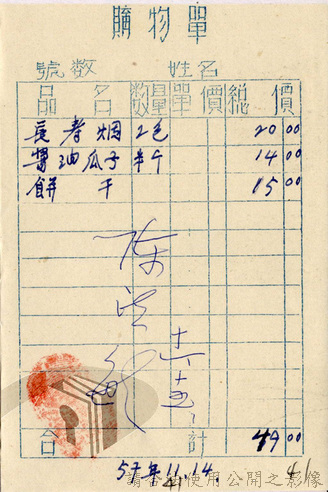 購物單
號数 姓名
品名 数量 單價 總價
長寿烟 2包 20 00
醬油瓜子 半斤 14 00
餅干 15 00
合計 49 00
57年11.14.
請合理使用公開之影像